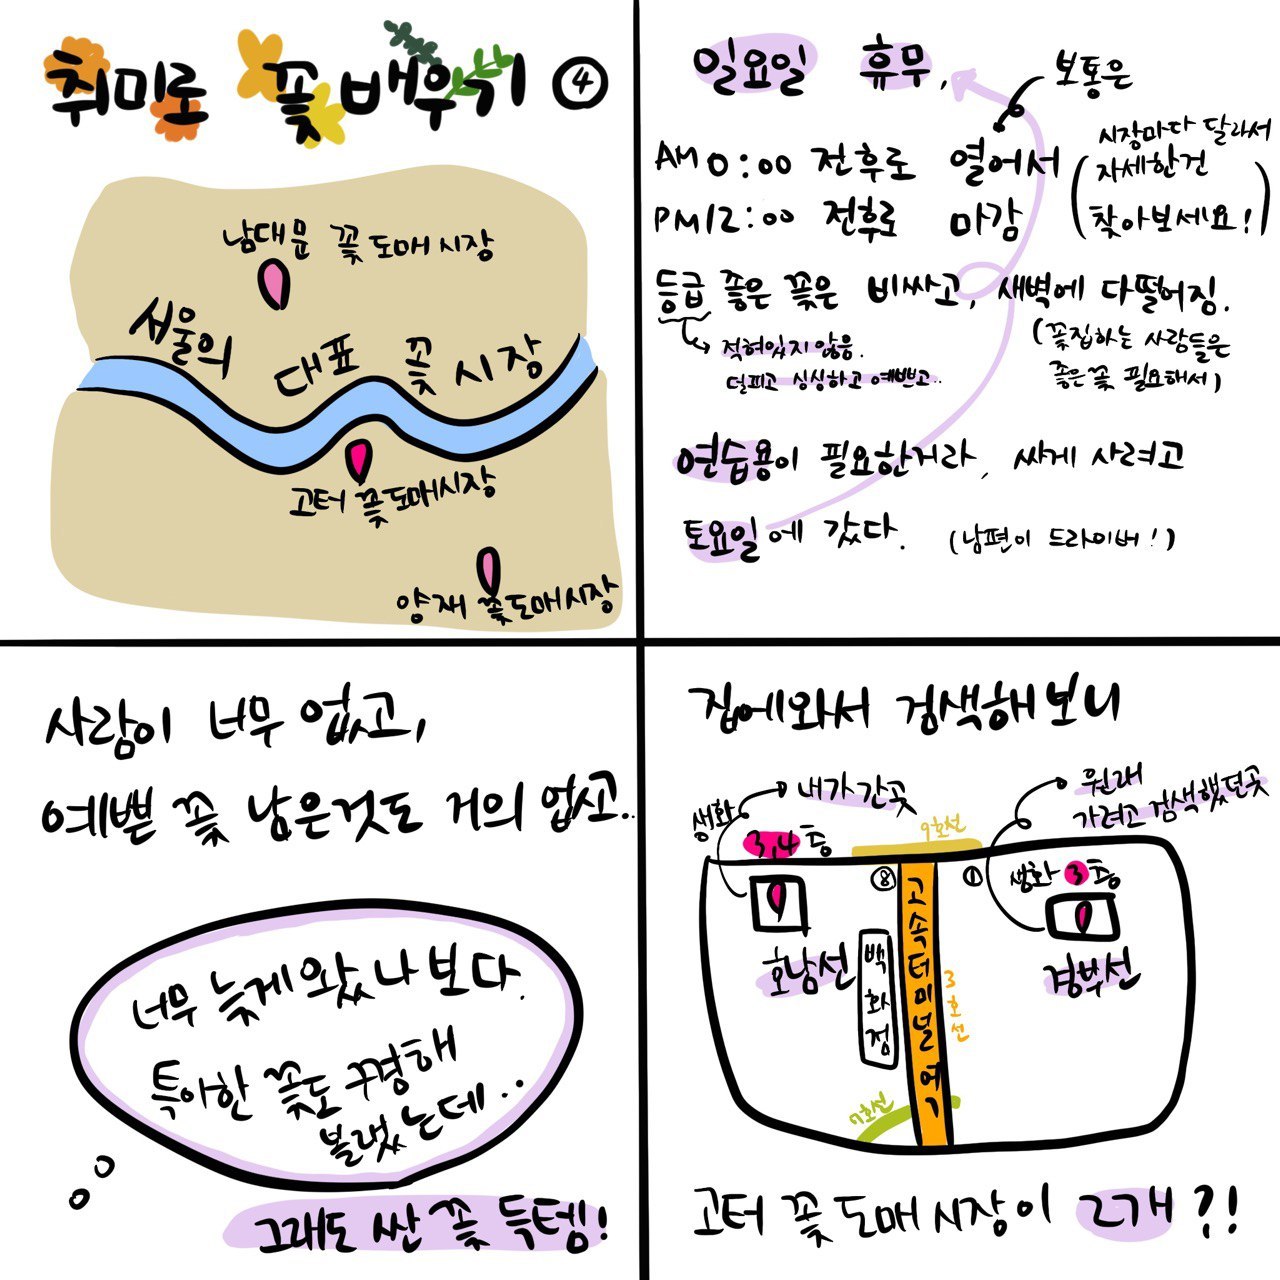 취미로 꽃 배우기 ④
남대문 꽃 도매시장
서울의 대표 꽃 시장
고터 꽃도매시장
양재 꽃도매시장
일요일 휴무,
보통은
AM 0:00 전후로 열어서
PM 12:00 전후로 마감
(시장마다 달라서
자세한건
찾아보세요!)
등급 좋은 꽃은 비싸고, 새벽에 다떨어짐.
적혀있지 않음.
덜피고 싱싱하고 예쁘고..
(꽃집하는 사람들은
좋은꽃 필요해서)
연습용이 필요한거라, 싸게 사려고
토요일에 갔다. (남편이 드라이버!)
사람이 너무 없고,
예쁜 꽃 남은것도 거의 없고..
너무 늦게 왔나 보다.
특이한 꽃도 구경해
볼랬는데..
그래도 싼 꽃 득템!
집에와서 검색해보니
내가 간곳
원래
가려고 검색했던곳
생화
3,4층
9호선
⑧
①
생화 3층
호남선
백화점
고속터미널역
3호선
경부선
7호선
고터 꽃 도매시장이 2개?!